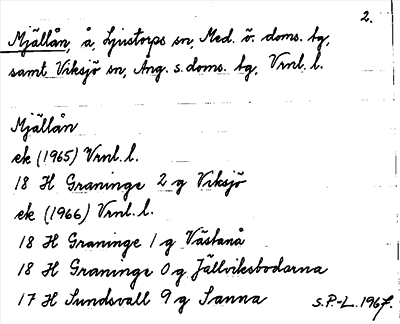 2.
Mjällån, å, Ljustorps sn, Med. ö. doms. tg,
samt Viksjö sn, Ång. s. doms. tg, Vrnl. l.
Mjällån
ek (1965) Vrnl. l.
18 H Graninge 2 g Viksjö
ek (1966) Vrnl. l.
18 H Graninge 1 g Västanå
18 H Graninge 0 g Jällviksbodarna
17 H Sundsvall 9 g Sanna
S.P.-L. 1967.